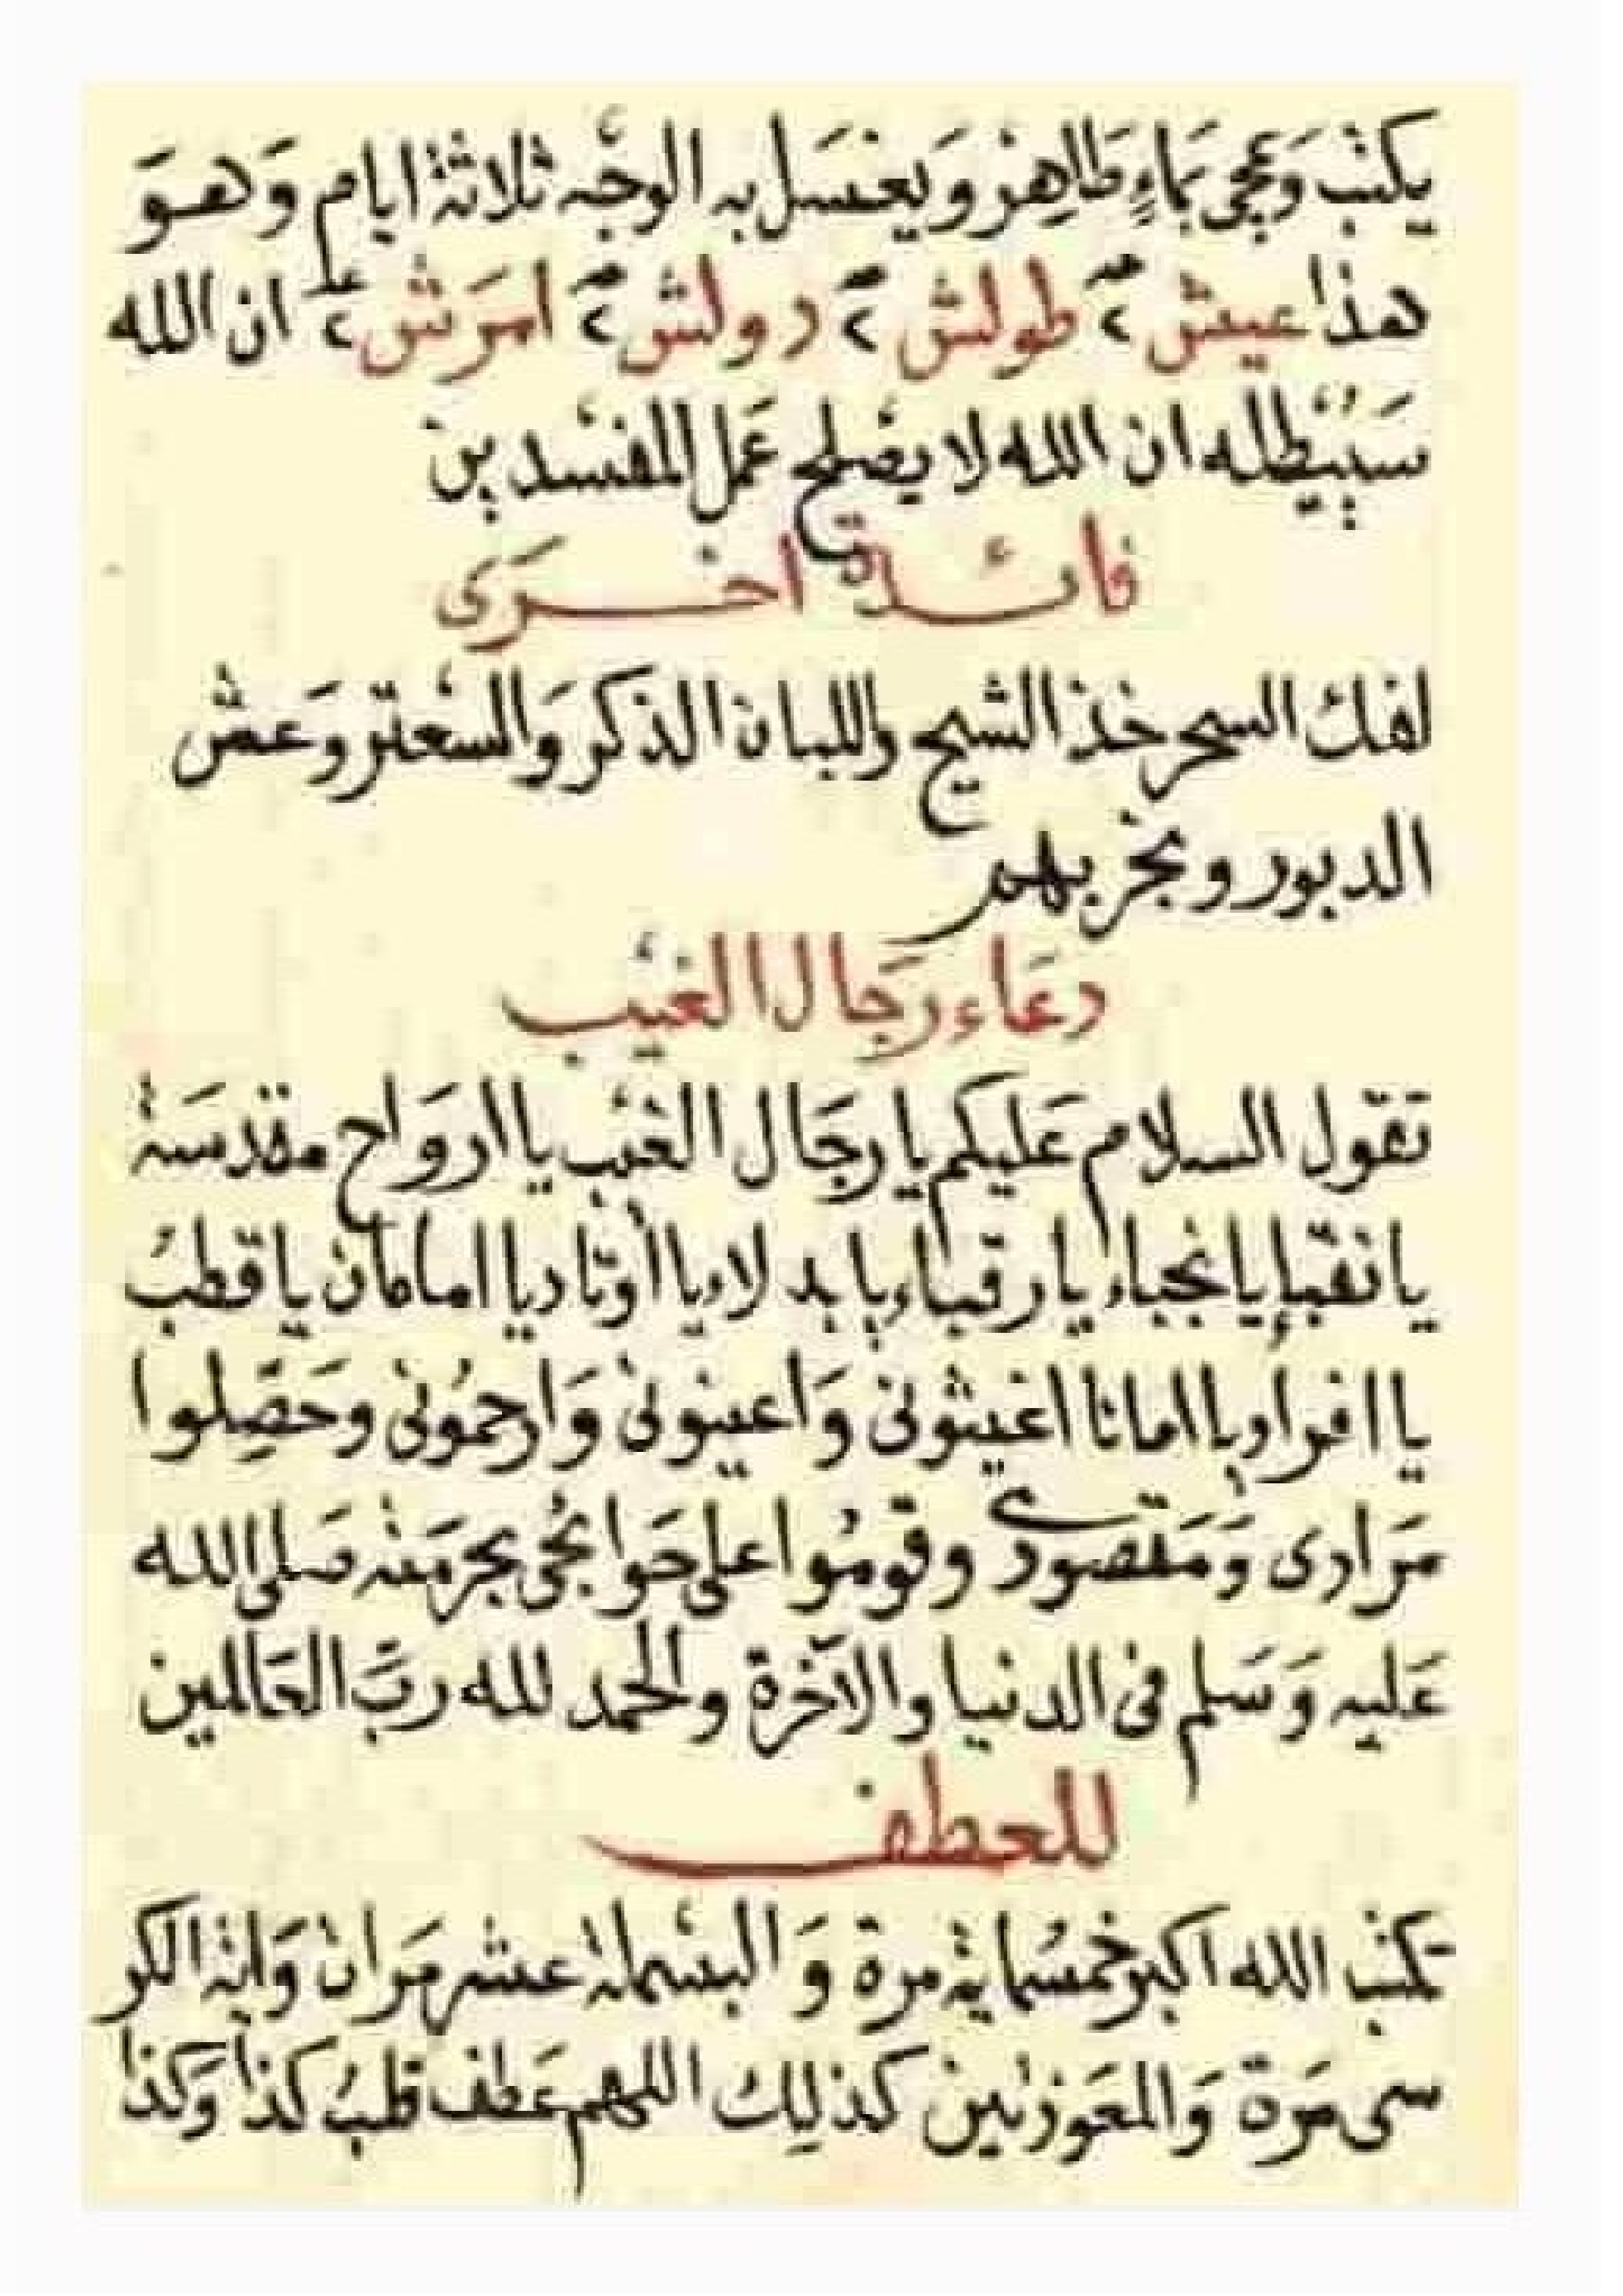 يكتب وَيمحى بمَاءٍ طَاهِر وَيغسَل به الوجْه ثلاثة ايام وَهوَ
هذا عيش ٢ طولش ٢ دولش ٢ امرَش ٢ ان الله
سَيُبْطِله ان الله لا يصْلح عَمل المفسْدين
فائدة اخرَى
لفك السحر خذ الشيح واللبان الذكر وَالسْعتر وعَش
الدبور وبخر بهم
دعَاء رجَال الغيْب
تقول السلام عَليكم يا رجَال الغيْب يا ارْوَاح مقدسَة
يا نقبَاء يا نجباء يا رقبَاء يا بدلاء يا أوْتاد يا امامان يا قطبُ
يا افراد يا امانا اغيثونى وَاعينونى وَارحمُونى وحَصِّلوا
مَرادى وَمَقصودى وقومُوا على حَوائجى بحرمَته صَلى الله
عَليه وَسَلم فى الدنيا والآخرة والحمد لله ربَّ العَالمين
للعطف
تكتب الله اكبر خمسُماية مرة وَ البسْملة عشر مَرات وَاية الكر
سى مَرة وَالمعَوذتين كذلِك اللهم عَطف قلبُ كذا وَكذا